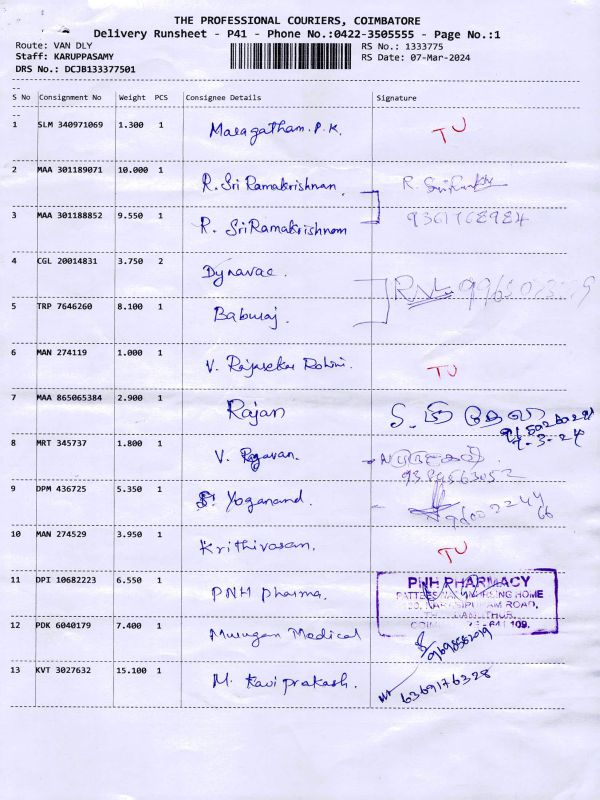 THE PROFESSIONAL COURIERS, COIMBATORE
Delivery Runsheet - P41 - Phone No.:0422-3505555 - Page No.:1
Route: VAN DLY
RS No.: 1333775
Staff: KARUPPASAMY
RS Date: 07-Mar-2024
DRS No.: DCJB133377501
S No Consignment No Weight PCS Consignee Details Signature
1 SLM 340971069 1.300 1 Maragatham. P. K. TU
2 MAA 301189071 10.000 1 R. Sri Ramakrishnan.
3 MAA 301188852 9.550 1 R. SriRamakrishnan
4 CGL 20014831 3.750 2 Dynavac.
5 TRP 7646260 8.100 1 Baburaj.
6 MAN 274119 1.000 1 V. Rajasekar Rohini. TU
7 MAA 865065384 2.900 1 Rajan
7-3-24
8 MRT 345737 1.800 1 V. Ragavan.
9 DPM 436725 5.350 1 Yoganand.
10 MAN 274529 3.950 1 Krithivasan. TU
11 DPI 10682223 6.550 1 PNH Pharma.
PNH PHARMACY
NURSING HOME
ROAD,
641 109.
12 PDK 6040179 7.400 1 Murugan Medical
13 KVT 3027632 15.100 1 M. Kavi prakash. 6369176328